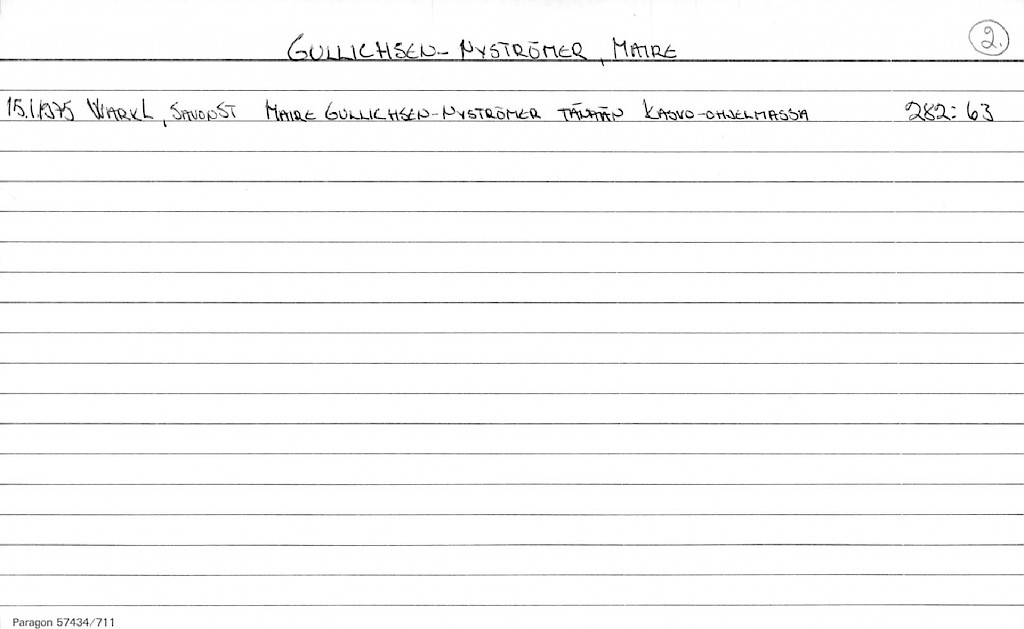 GULLICHSEN-NYSTRÖMER, MAIRE 2.
15.1.1975 WARKL, SAVONST MAIRE GULLICHSEN-NYSTRÖMER TÄNÄÄN KASVO-OHJELMASSA 282:63
Paragon 57434/711